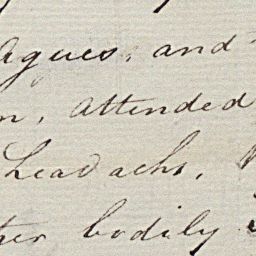 Agues, and
n, attended
headachs,
her bodily